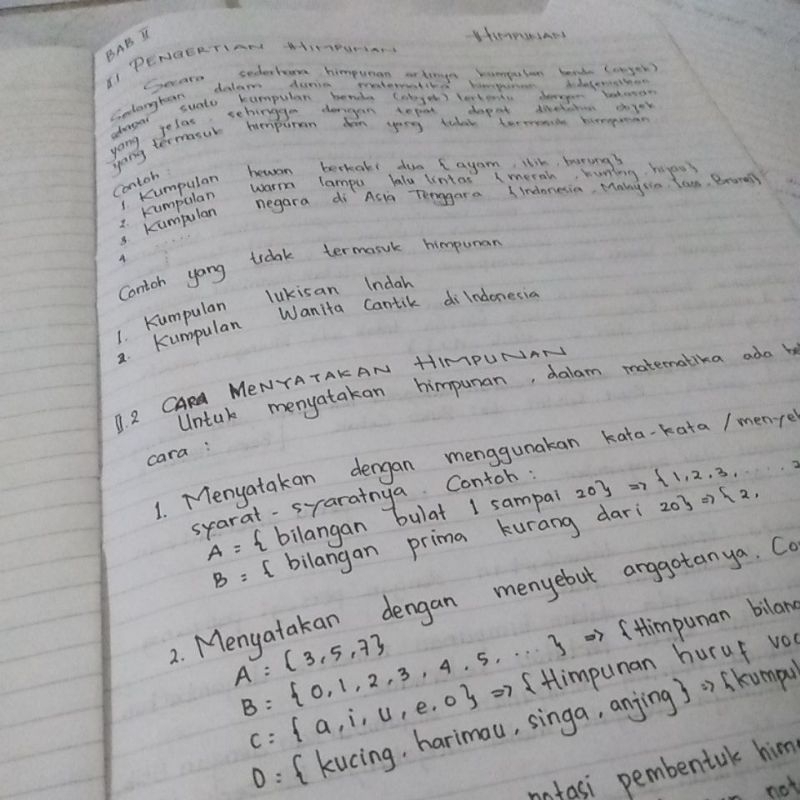 BAB II
HIMPUNAN
II.1 PENGERTIAN HIMPUNAN
Secara sederhana himpunan artinya kumpulan benda (objek)
Sedangkan dalam dunia matematika himpunan didefenisikan
sebagai suatu kumpulan benda (objek) tertentu dengan batasan
yang jelas, sehingga dengan tepat dapat diketahui objek
yang termasuk himpunan dan yang tidak termasuk himpunan
Contoh :
1. Kumpulan hewan berkaki dua { ayam, itik, burung}
2. Kumpulan warna lampu lalu lintas { merah, kuning, hijau}
3. Kumpulan negara di Asia Tenggara {Indonesia, Malaysia, Laos, Brunei}
4. .....
Contoh yang tidak termasuk himpunan
1. Kumpulan lukisan Indah
2. Kumpulan Wanita Cantik di Indonesia
II.2 CARA MENYATAKAN HIMPUNAN
Untuk menyatakan himpunan, dalam matematika ada
cara :
1. Menyatakan dengan menggunakan kata-kata /
syarat-syaratnya. Contoh :
A = { bilangan bulat 1 sampai 20} => {1,2,3, ....
B = { bilangan prima kurang dari 20} => {2,
2. Menyatakan dengan menyebut anggotanya.
A = {3,5,7}
B = {0,1,2,3,4,5, ...} => {Himpunan
C = { a, i, u, e, o} => {Himpunan huruf
D = { kucing, harimau, singa, anjing} => {
notasi pembentuk